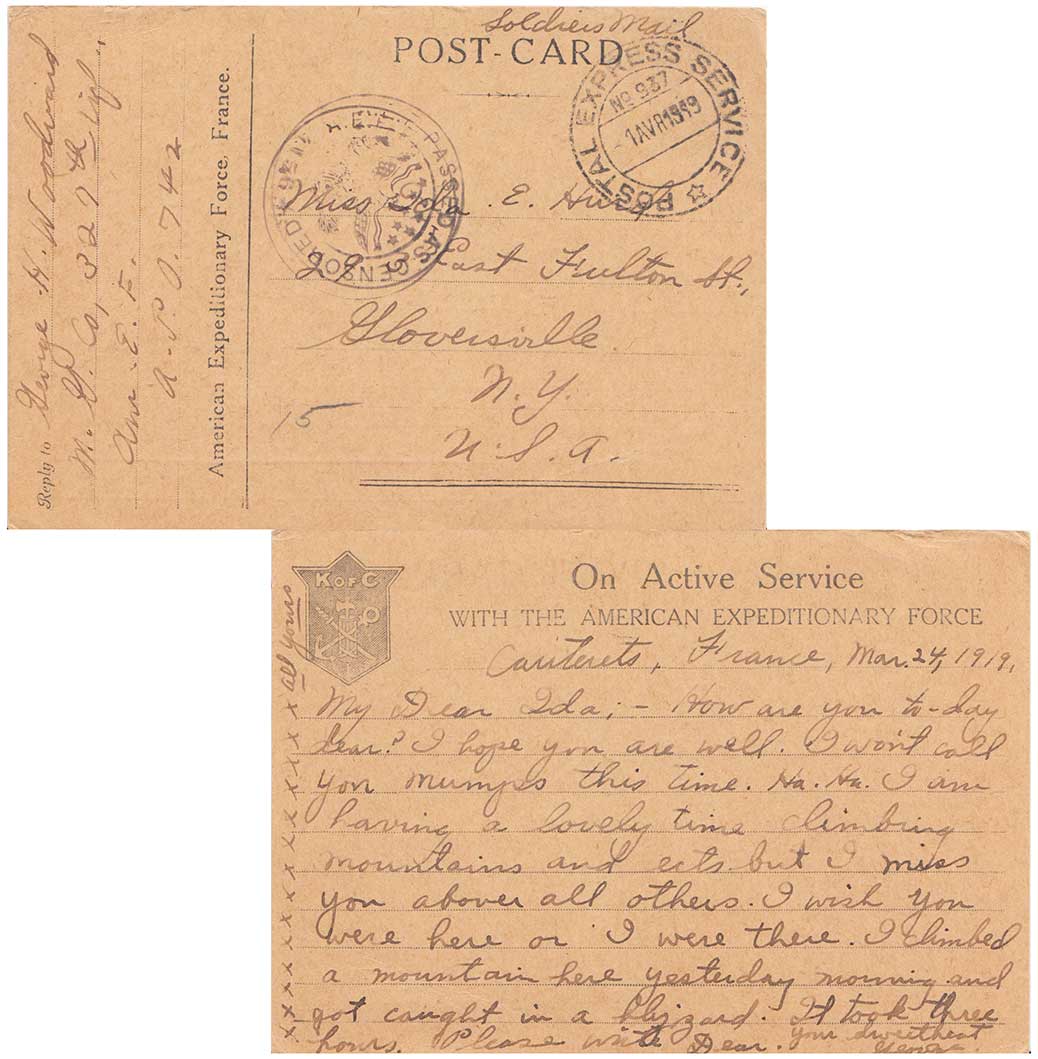 Soldiers Mail
POST-CARD
POSTAL EXPRESS SERVICE
No 937
1 AVR 1919
PASSED AS CENSORED
Reply to George H. Woodward
M. G. Co, 329th inf.
Am. E. F.
A. P. O. 742
American Expeditionary Force, France.
Miss Ida E.
East Fulton St.,
Gloversville
N. Y.
U. S. A.
15
K OF C
On Active Service
WITH THE AMERICAN EXPEDITIONARY FORCE
Cauterets, France, Mar. 24, 1919.
My Dear Ida; - How are you to-day
dear? I hope you are well. I won't call
you mumps this time. Ha. Ha. I am
having a lovely time climbing
mountains and ects. but I miss
you above all others. I wish you
were here or I were there. I climbed
a mountain here yesterday morning and
got caught in a blizzard. It took three
hours. Please write Dear. your sweetheart
George
x x x x x x x x x x x x x all yours